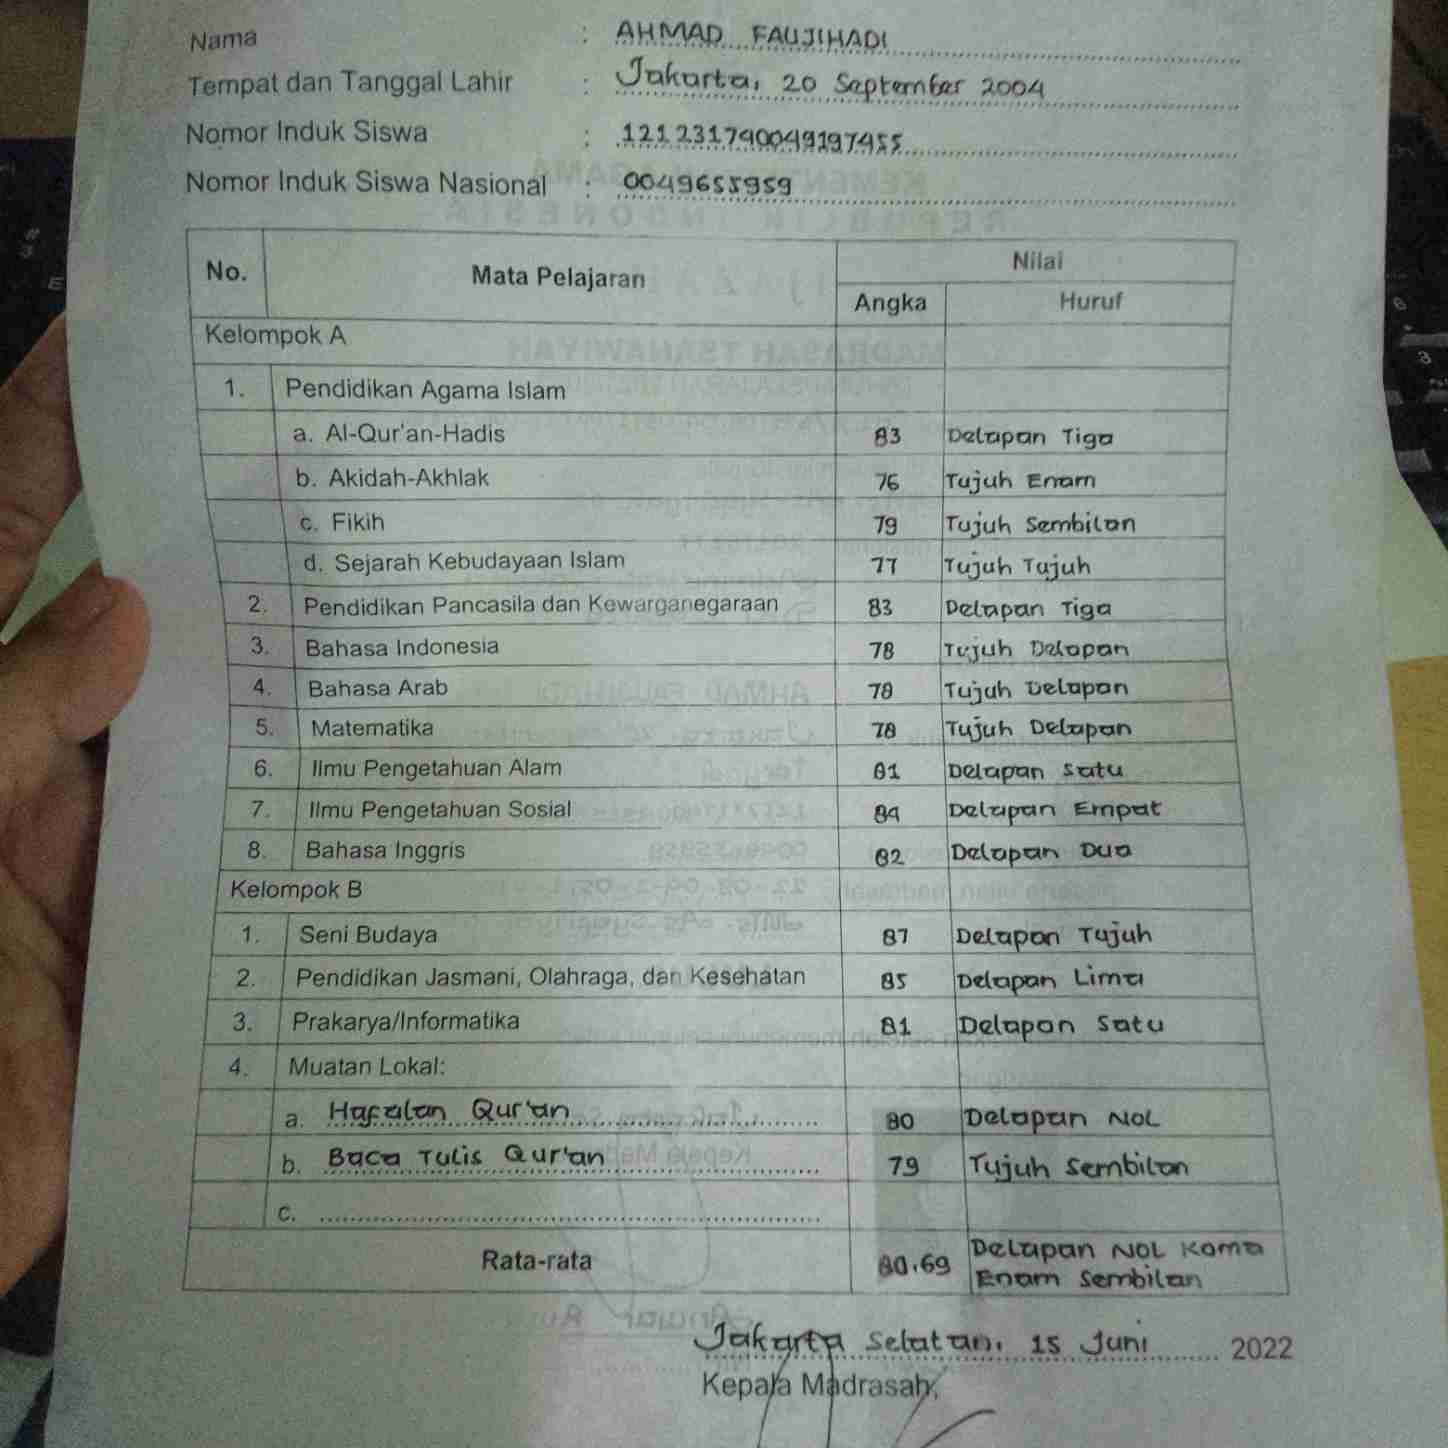 Nama : AHMAD FAUJIHADI
Tempat dan Tanggal Lahir : Jakarta, 20 September 2004
Nomor Induk Siswa : 121231740049197455
Nomor Induk Siswa Nasional : 0049655959
No. Mata Pelajaran Nilai
Angka Huruf
Kelompok A
1. Pendidikan Agama Islam
a. Al-Qur'an-Hadis 83 Delapan Tiga
b. Akidah-Akhlak 76 Tujuh Enam
c. Fikih 79 Tujuh Sembilan
d. Sejarah Kebudayaan Islam 77 Tujuh Tujuh
2. Pendidikan Pancasila dan Kewarganegaraan 83 Delapan Tiga
3. Bahasa Indonesia 78 Tujuh Delapan
4. Bahasa Arab 78 Tujuh Delapan
5. Matematika 78 Tujuh Delapan
6. Ilmu Pengetahuan Alam 81 Delapan Satu
7. Ilmu Pengetahuan Sosial 84 Delapan Empat
8. Bahasa Inggris 82 Delapan Dua
Kelompok B
1. Seni Budaya 87 Delapan Tujuh
2. Pendidikan Jasmani, Olahraga, dan Kesehatan 85 Delapan Lima
3. Prakarya/Informatika 81 Delapan Satu
4. Muatan Lokal:
a. Hafalan Qur'an 80 Delapan Nol
b. Baca Tulis Qur'an 79 Tujuh Sembilan
c.
Rata-rata 80,69 Delapan Nol Koma
Enam Sembilan
Jakarta Selatan, 15 Juni 2022
Kepala Madrasah,